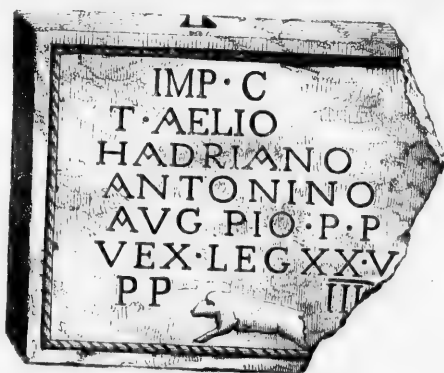 IMP · C
T · AELIO
HADRIANO
ANTONINO
AVG PIO · P · P
VEX · LEG XX · V
P P III